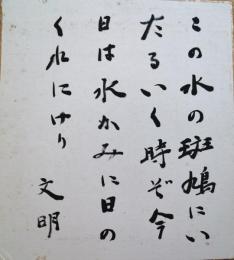 この水の斑鳩にい
たるいく時ぞ今
日は水かみに日の
くれにけり
文明